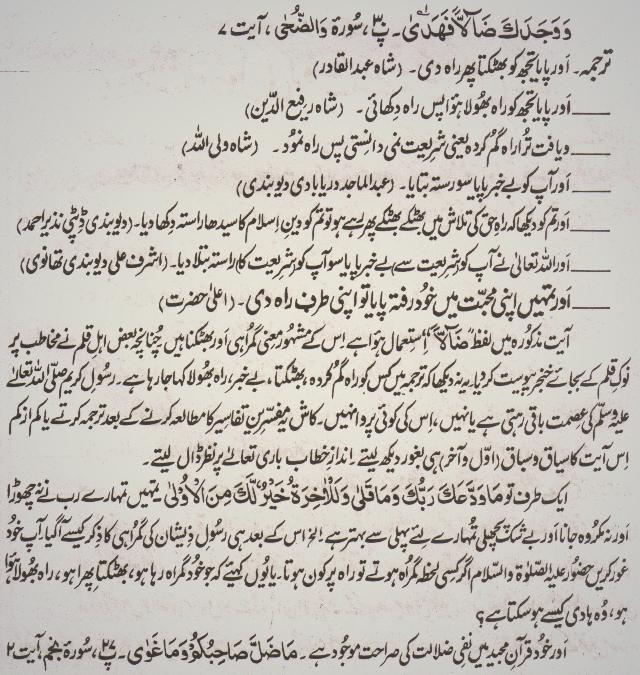 وَوَجَدَكَ ضَآلًّا فَهَدٰى۔ پ۳۰، سُورۃ وَالضُّحٰى، آیت ۷
ترجمہ۔ اَور پایا تجھ کو بھٹکتا پھر راہ دی۔ (شاہ عبدالقادر)
اَور پایا تجھ کو راہ بھُولا ہؤا پس راہ دِکھائی۔ (شاہ رفیع الدّین)
و یافت تُرا راہ گم کردہ یعنی شریعت نمی دانستی پس راہ نمُود۔ (شاہ ولی اللّٰہ)
اَور آپ کو بے خبر پایا سو رستہ بتایا۔ (عبدالماجد دریابادی دیوبندی)
اَور تم کو دیکھا کہ راہِ حق کی تلاش میں بھٹکے بھٹکے پھر رہے ہو تو تم کو دینِ اِسلام کا سیدھا راستہ دِکھا دیا۔ (دیوبندی ڈپٹی نذیر احمد)
اَور اللّٰہ تعالیٰ نے آپ کو (شریعت سے) بے خبر پایا سو آپ کو (شریعت کا) راستہ بتلا دیا۔ (اشرف علی دیوبندی تھانوی)
اَور تمہیں اپنی محبّت میں خُود رفتہ پایا تو اپنی طرف راہ دی۔ (اعلیٰ حضرت)
آیت مذکورہ میں لفظ "ضَآلًّا" اِستعمال ہؤا ہے اِس کے مشہُور معنی گمراہی اَور بھٹکنا ہیں چُنانچہ بعض اہلِ قلم نے مخاطب پر
نوکِ قلم کے بجائے خنجر پیوست کر دیا۔ یہ نہ دیکھا کہ ترجمہ میں کس کو راہ گُم کردہ، بھٹکتا، بے خبر، راہ بھُولا کہا جا رہا ہے۔ رسُولِ کریم صلّی اللّٰہ تعالیٰ
علیہ وسلّم کی عصمت باقی رہتی ہے یا نہیں، اِس کی کوئی پروا نہیں۔ کاش یہ مفسّرین تفاسیر کا مطالعہ کرنے کے بعد ترجمہ کرتے یا کم از کم
اِس آیت کا سیاق و سباق (اوّل و آخر) ہی بغور دیکھ لیتے۔ اندازِ خطاب باری تعالیٰ پر نظر ڈال لیتے۔
ایک طرف تو مَا وَدَّعَكَ رَبُّكَ وَمَا قَلٰى وَلَلْاٰخِرَةُ خَيْرٌ لَّكَ مِنَ الْاُوْلٰى تمہیں تمہارے رب نے نہ چھوڑا
اَور نہ مکروہ جانا اَور بے شک پچھلی تمہارے لئے پہلی سے بہتر ہے الخ اس کے بعد ہی رسُولِ ذیشان کی گمراہی کا ذِکر کیسے آگیا۔ آپ خُود
غور کریں حضُور علیہ الصّلوٰۃ والسّلام اگر کسی لحظہ گمراہ ہوتے تو راہ پر کون ہوتا۔ یا یُوں کہیئے کہ جو خود گمراہ رہا ہو، بھٹکتا پھرا ہو، راہ بھُولا ہؤا
ہو، وُہ ہادی کیسے ہو سکتا ہے؟
اَور خُود قُرآنِ مجید میں نفی ضلالت کی صراحت موجُود ہے۔ مَا ضَلَّ صَاحِبُكُمْ وَمَا غَوٰى۔ پ۲۷، سُورۃ نجم، آیت ۲